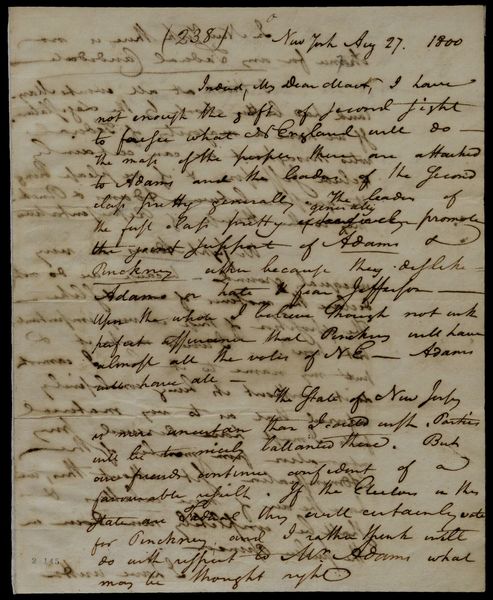 (238)
New York Aug 27. 1800
Indeed, My Dear Madam, I have
not enough the gift of second sight
to foresee what N England will do —
the mass of the people there are attached
to Adams and the leaders of the Second
class pretty generally. The leaders of
the first class pretty generally promote
the joint support of Adams &
Pinckney either because they dislike
Adams or hate & fear Jefferson —
Upon the whole I believe though not with
perfect assurance that Pinckney will have
almost all the votes of N.E — Adams
will have all —
The State of New Jersey
is more uncertain than I could wish. Parties
will be too nicely ballanced there. But
our friends continue confident of a
favourable result. If the Electors in this
State are they will certainly vote
for Pinckney and I rather think will
do with respect to Mr. Adams what
may be thought right
2 145